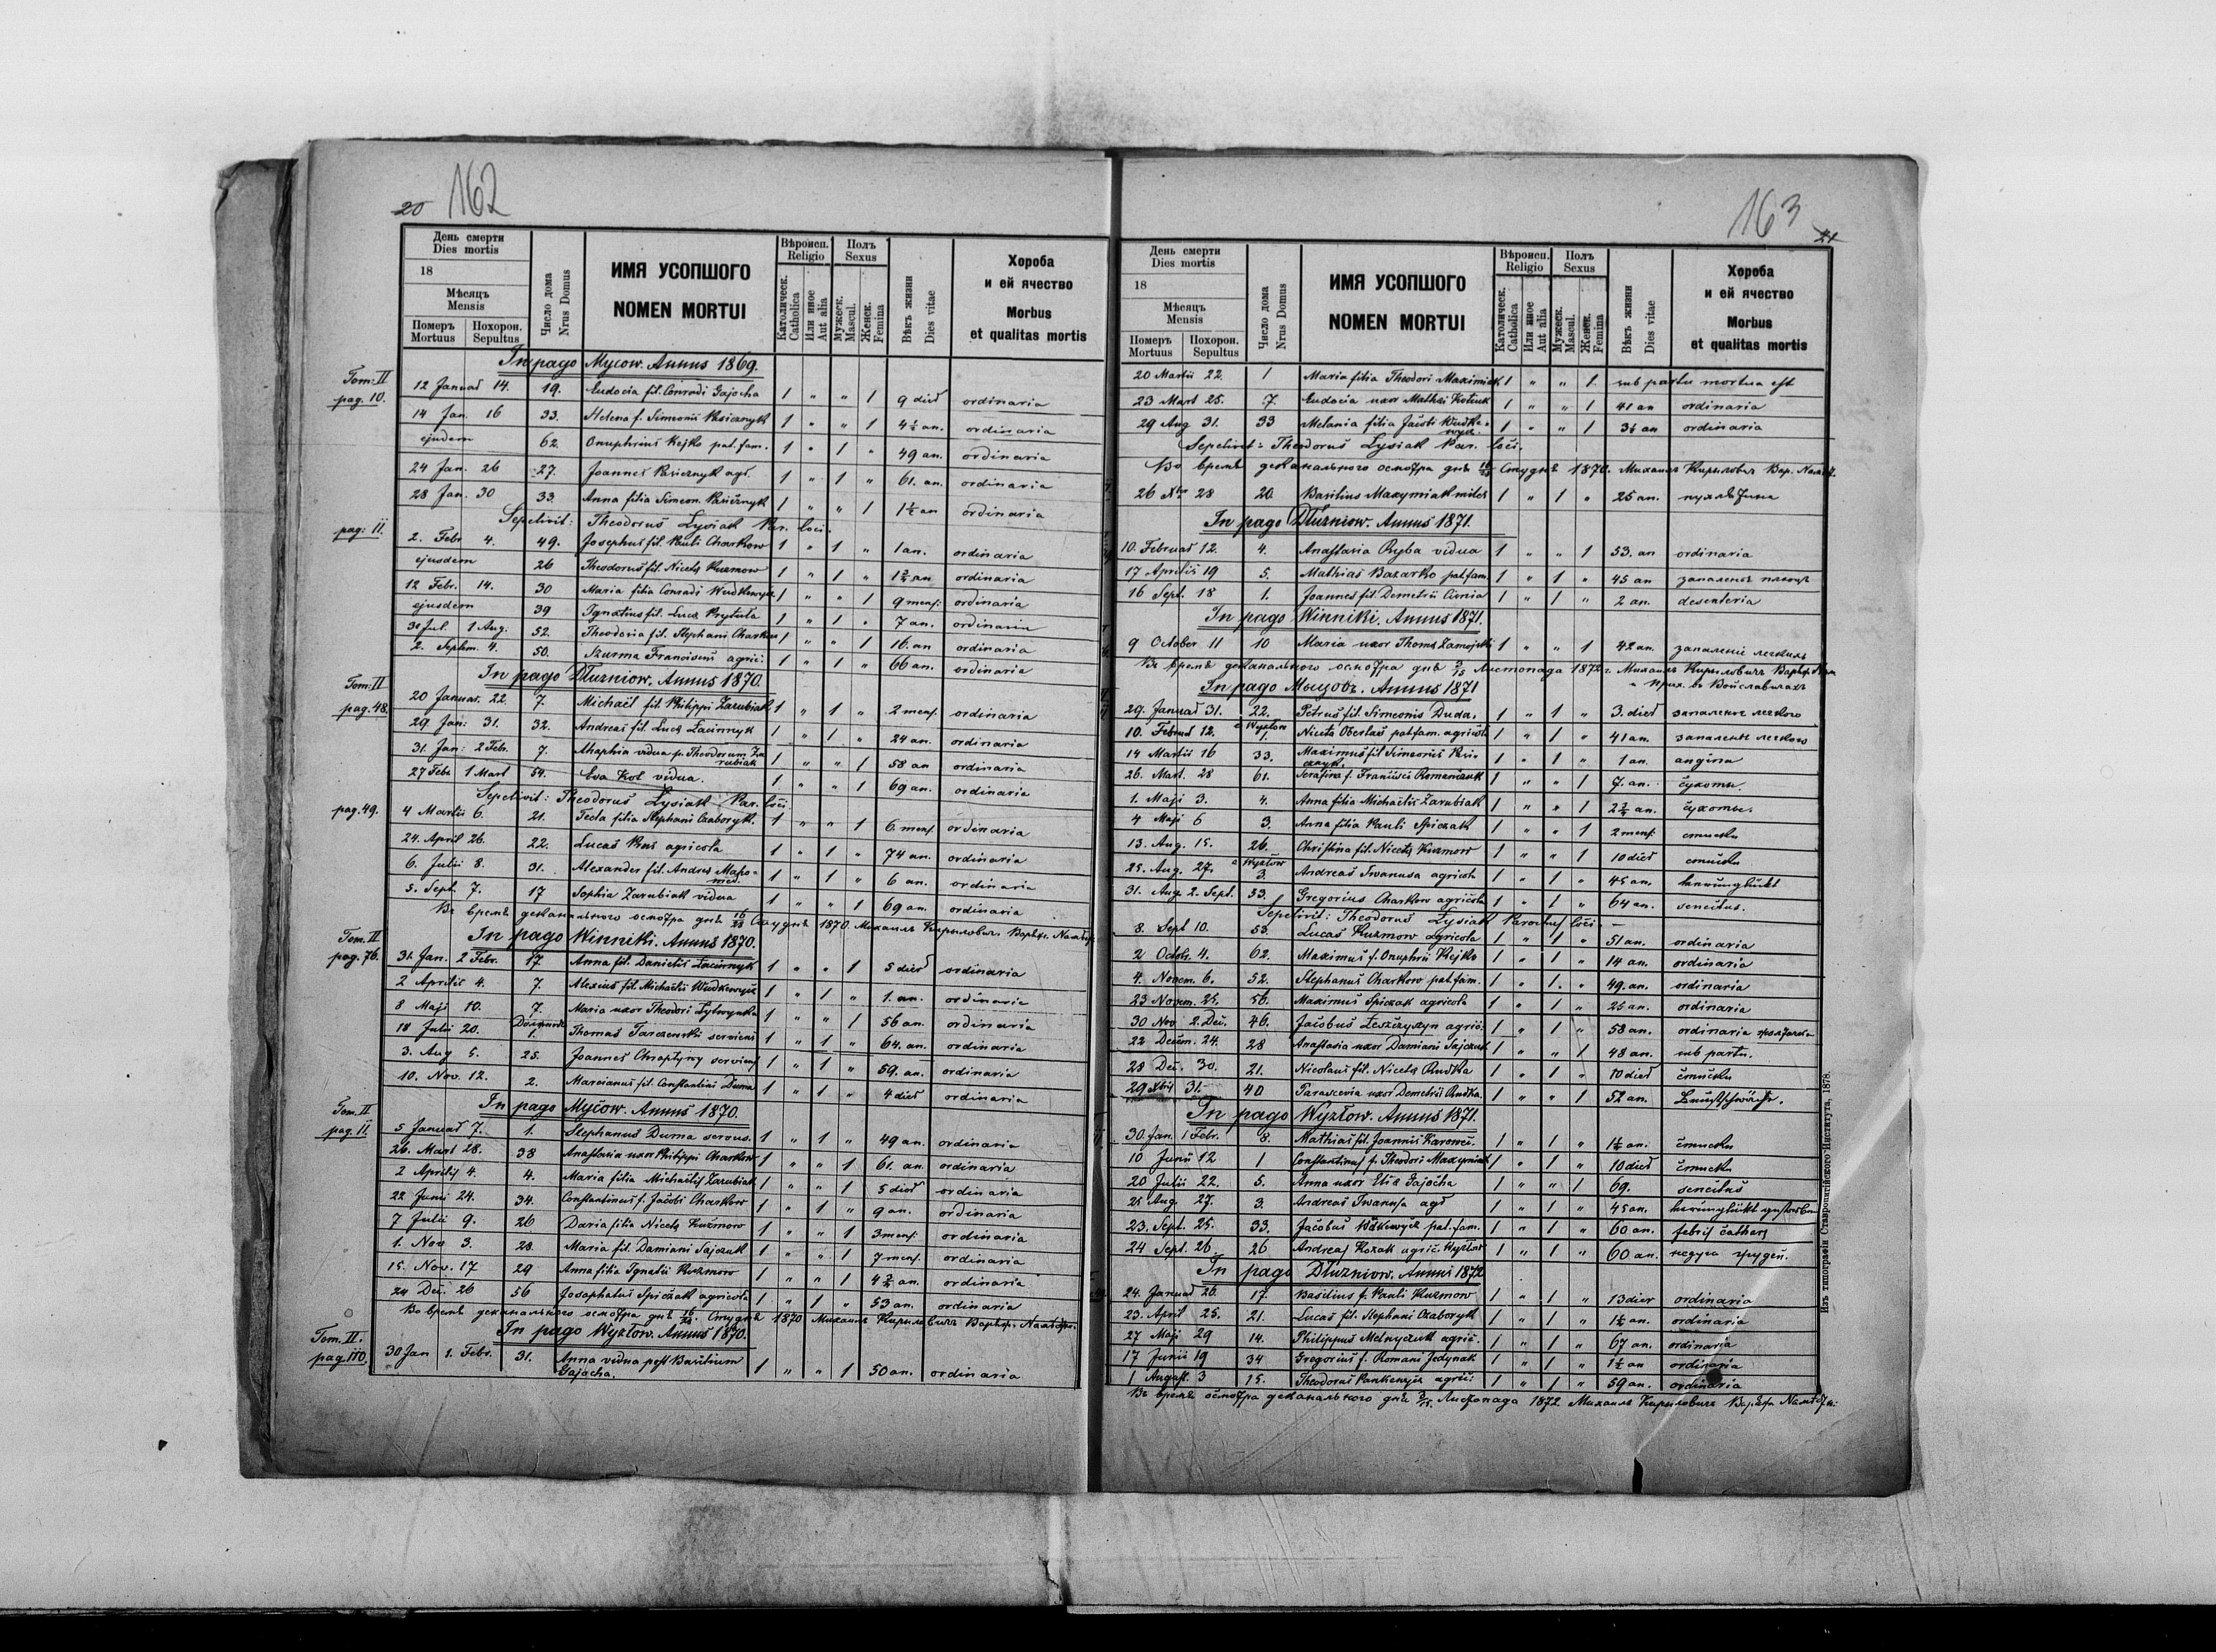 20 162
День смерти
Dies mortis
18
Мѣсяцъ
Mensis
Померъ
Mortuus
Похорон.
Sepultus
Число дома
Nrus Domus
ИМЯ УСОПШОГО
NOMEN MORTUI
Вѣроисп.
Religio
Католическ.
Catholica
Или иное
Aut alia
Полъ
Sexus
Мужеск.
Mascul.
Женск.
Femina
Вѣкъ жизни
Dies vitae
Хороба
и ей ячество
Morbus
et qualitas mortis
In pago Mycow. Annus 1869.
Tom: II
pag. 10.
12 Januar 14. 19. Eudocia fil. Conradi Gajocha 1 " " 1 9 dies ordinaria
14 Jan. 16 33. Helena f. Simeonis 1 " " 1 4½ an. ordinaria
ejusdem 62. Onuphrius Kejko pat. fam. 1 " 1 " 49 an. ordinaria
24 Jan. 26 27. Joannes agr. 1 " 1 " 61. an. ordinaria
28 Jan. 30 33. Anna filia Simeon. 1 " " 1 1½ an ordinaria
Sepelivit: Theodorus Lysiak Par. loci.
pag: 11.
2. Febr. 4. 49. Josephus fil. Pauli Charkow 1 " 1 " 1 an. ordinaria
ejusdem 26 Theodorus fil. Nicetae Kuzmow 1 " 1 " an ordinaria
12 Febr. 14. 30 Maria filia Conradi 1 " " 1 9 mens: ordinaria
ejusdem 39 Ignatius fil. Lucae Prytula 1 " 1 " 7 an. ordinaria
30 Jul. 1 Aug. 52. Theodosia fil. Stephani Charkow 1 " " 1 16. an ordinaria
2. Septem. 4. 50. Szurma Franciscus agric: 1 " 1 " 66 an. ordinaria
In pago Dłużniow. Annus 1870.
Tom: II
pag. 48.
20 Januar. 22 7. Michaël fil. Philippi Zarubiak 1 " 1 " 2 mens. ordinaria
29 Jan: 31. 32. Andreas fil. Lucae 1 " 1 " 24 an. ordinaria
31. Jan: 2 Febr. 7. Ahaphia vidua p. Theodorum Zarubiak 1 " " 1 58 an ordinaria
27 Febr. 1 Mart 54. Eva Kot vidua. 1 " " 1 69 an. ordinaria
Sepelivit: Theodorus Lysiak Par. loci.
pag. 49.
4 Martii 6. 21. Tecla filia Stephani Czaboryk. 1 " " 1 6. mens. ordinaria
24. April 26. 22. Lucas agricola 1 " 1 " 74 an. ordinaria
6. Julii 8. 31. Alexander fil. Andreae 1 " 1 " 6 an. ordinaria
5. Sept. 7. 17 Sophia Zarubiak vidua 1 " " 1 69 an. ordinaria
Въ время деканального осмотра дня 16/28 Студня 1870. Михаилъ Кирыловичъ
In pago Winniki. Annus 1870.
Tom. II
pag. 76.
31. Jan. 2 Febr. 17. Anna fil. Danielis 1 " " 1 5 dies ordinaria
2 Aprilis 4. 7. Alexius fil. Michaëlis 1 " 1 " 1. an. ordinaria
8 Maji 10. 7. Maria uxor Theodori 1 " " 1 56 an. ordinaria
18 Julii 20. 1. Thomas serviens 1 " 1 " 64. an. ordinaria
3. Aug 5. 25. Joannes serviens 1 " 1 " 59. an. ordinaria
10. Nov. 12. 2. Marcianus fil. Constantini Duma 1 " 1 " 4 dies ordinaria
In pago Myčow. Annus 1870.
Tom. II
pag. 11.
5 Januar 7. 1. Stephanus Duma servus. 1 " 1 " 49 an. ordinaria
26. Mart 28. 38 Anastasia uxor Philippi Charkow 1 " " 1 61. an. ordinaria
2 Aprilis 4. 4. Maria filia Michaëlis Zarubiak 1 " " 1 5 dies ordinaria
22 Junii 24. 34. Constantinus f. Jacobi Charkow 1 " 1 " 9 an. ordinaria
7 Julii 9. 26 Daria filia Nicetae Kuzmow 1 " " 1 3 mens: ordinaria
1. Nov 3. 28. Maria fil. Damiani Sajczuk 1 " " 1 7 mens. ordinaria
15. Nov. 17 29 Anna filia Ignatii Kuzmow 1 " " 1 an. ordinaria
24 Dec. 26 56 Josaphatus Spiczak agricola 1 " 1 " 53 an. ordinaria
Во время деканального осмотра дня 16/28 Студня 1870 Михаилъ Кирыловичъ
In pago Wyzłow. Annus 1870.
Tom. II.
pag. 110.
30 Jan 1. Febr. 31. Anna vidua post Basilium Gajocha. 1 " " 1 50 an. ordinaria
163 21
День смерти
Dies mortis
18
Мѣсяцъ
Mensis
Померъ
Mortuus
Похорон.
Sepultus
Число дома
Nrus Domus
ИМЯ УСОПШОГО
NOMEN MORTUI
Вѣроисп.
Religio
Католическ.
Catholica
Или иное
Aut alia
Полъ
Sexus
Мужеск.
Mascul.
Женск.
Femina
Вѣкъ жизни
Dies vitae
Хороба
и ей ячество
Morbus
et qualitas mortis
20 Martii 22. 1 Maria filia Theodori Maximiak 1 " " 1. sub partu mortua est
23 Mart 25. 7. Eudocia uxor Mathei 1 " " 1 41 an ordinaria
29 Aug 31. 33 Melania filia Jacobi 1 " " 1 an ordinaria
Sepelivit: Theodorus Lysiak Par. loci.
Во время деканального осмотра дня 16/28 Студня 1870. Михаилъ Кирыловичъ
26 28 20. Basilius Maxymiak miles 1 " 1 " 25 an.
In pago Dłużniow. Annus 1871.
10. Februar 12. 4. Anastasia Ryba vidua 1 " " 1 53. an ordinaria
17 Aprilis 19 5. Mathias Bazarko pat. fam. 1 " 1 " 45 an
16 Sept. 18 1. Joannes fil. Demetrii 1 " 1 " 2 an. desenteria
In pago Winniki. Annus 1871.
9 October 11 10 Maria uxor Thomae Zamojski 1 " " 1 42 an.
Въ время деканального осмотра дня 3/15 Листопада 1872. Михаилъ Кирыловичъ
In pago Мыцовъ. Annus 1871
29. Januar 31. 22. Petrus fil. Simeonis Duda. 1 " 1 " 3. dies запаленье легкого
10. Februar 12. 1. Nicetas pat. fam. agricola 1 " 1 " 41 an. запаленье легкого
14 Martii 16 33. Maximus fil. Simeonis 1 " 1 " 1 an. angina
26. Mart. 28 61. Serafina f. Francisci Romanczuk 1 " " 1 7. an.
1. Maji 3. 4. Anna filia Michaëlis Zarubiak 1 " " 1 an.
4 Maji 6 3. Anna filia Pauli Spiczak 1 " " 1 2 mens:
13. Aug. 15. 26. Christina fil. Nicetae Kuzmow 1 " " 1 10 dies
25. Aug. 27. 3. Andreas Iwanusa agricola 1 " 1 " 45 an.
31. Aug. 2. Sept. 53. Gregorius Charkow agricola 1 " 1 " 64 an. senectus.
Sepelivit: Theodorus Lysiak Parochus loci.
8. Sept 10. 53. Lucas Kuzmow agricola 1 " 1 " 51 an. ordinaria
2 Octob. 4. 62. Maximus f. Onuphrii Kejko 1 " 1 " 14 an. ordinaria
4. Novem. 6. 52. Stephanus Charkow pat. fam. 1 " 1. " 49. an. ordinaria
23 Novem. 25. 56. Maximus Spiczak agricola 1 " 1 " 25 an. ordinaria
30 Nov 2. Dec. 46. Jacobus agric. 1 " 1 " 58 an. ordinaria
22 Decem. 24. 28 Anastasia uxor Damiani Sajczuk 1 " " 1 48 an. sub partu.
28 Dec. 30. 21. Nicolaus fil. Nicetae Rudka 1 " 1 " 10 dies
29 Xbris 31. 40 Parascevia uxor Demetrii Rudka. 1 " " 1 52 an.
In pago Wyzłow. Annus 1871.
30. Jan. 1 Febr. 8. Mathias fil. Joannis 1 " 1 " 1½ an.
10 Junii 12 1 Constantinus f. Theodori Maxymiak 1 " 1 " 10 dies
20 Julii 22. 5. Anna uxor Eliae Gajocha 1 " " 1 69. senectus
25 Aug. 27. 3. Andreas Iwanusa agr. 1 " 1 " 45 an.
23. Sept. 25. 33. Jacobus pat. fam. 1 " 1 " 60 an. febris
24 Sept. 26 26 Andreas Kozak agric. Wyzłow 1 " 1 " 60 an.
In pago Dłużniow. Annus 1872
24. Januar 26. 17. Basilius f. Pauli Kuzmow 1 " 1 " 13 dies ordinaria
23. April 25. 21. Lucas fil. Stephani Czaboryk 1 " 1 " 1½ an. ordinaria
27 Maji 29 14. Philippus Melnyczuk agric. 1 " 1 " 67 an. ordinaria
17 Junii 19 34 Gregorius f. Romani Jedynak 1 " 1 " 1½ an ordinaria
1 August. 3 15. Theodorus agric: 1 " 1 " 59 an. ordinaria
Въ время осмотра деканального дня 3/15 Листопада 1872 Михаилъ Кирыловичъ
Изъ типографіи Ставропигійского Института, 1878.